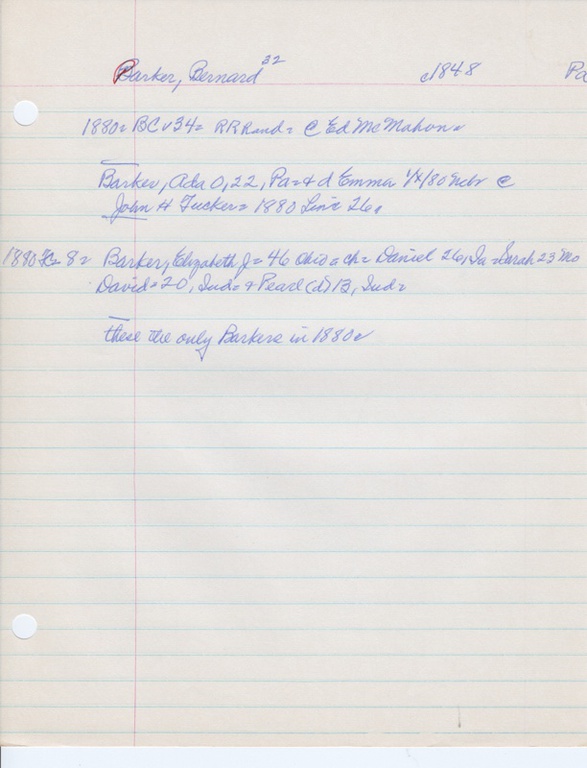 Barker, Bernard 32 c1848 Pa
1880= BCv34= RR hand= @ Ed McMahon=
Barker, Ada O, 22, Pa=+ d Emma 1/12/80 Nebr @
John H Tucker= 1880 Line 26=
1880 = 8= Barker, Elizabeth J= 46 Ohio= ch= Daniel 26, Ia=Sarah 23 Mo
David=20, Ind= + Pearl (d) 13, Ind=
these the only Barkers in 1880=